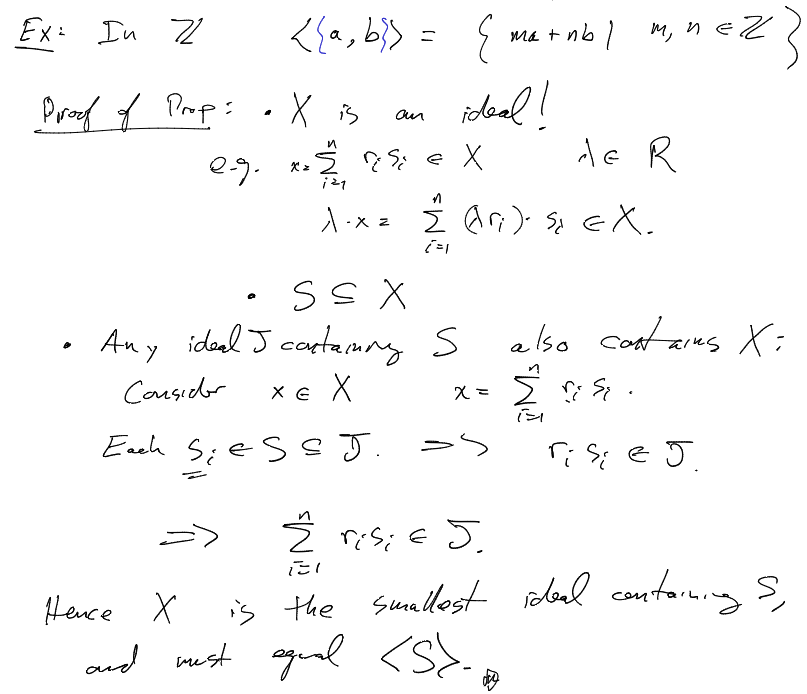 Ex: In ℤ ⟨{a, b}⟩ = { ma + nb | m, n ∈ ℤ }
Proof of Prop: • X is an ideal!
e.g. x = ∑_{i=1}^{n} r_i s_i ∈ X λ ∈ R
λ · x = ∑_{i=1}^{n} (λ r_i) · s_i ∈ X.
• S ⊆ X
• Any ideal J containing S also contains X:
Consider x ∈ X x = ∑_{i=1}^{n} r_i s_i .
Each s_i ∈ S ⊆ J. ⟹ r_i s_i ∈ J.
⟹ ∑_{i=1}^{n} r_i s_i ∈ J.
Hence X is the smallest ideal containing S,
and must equal ⟨S⟩.